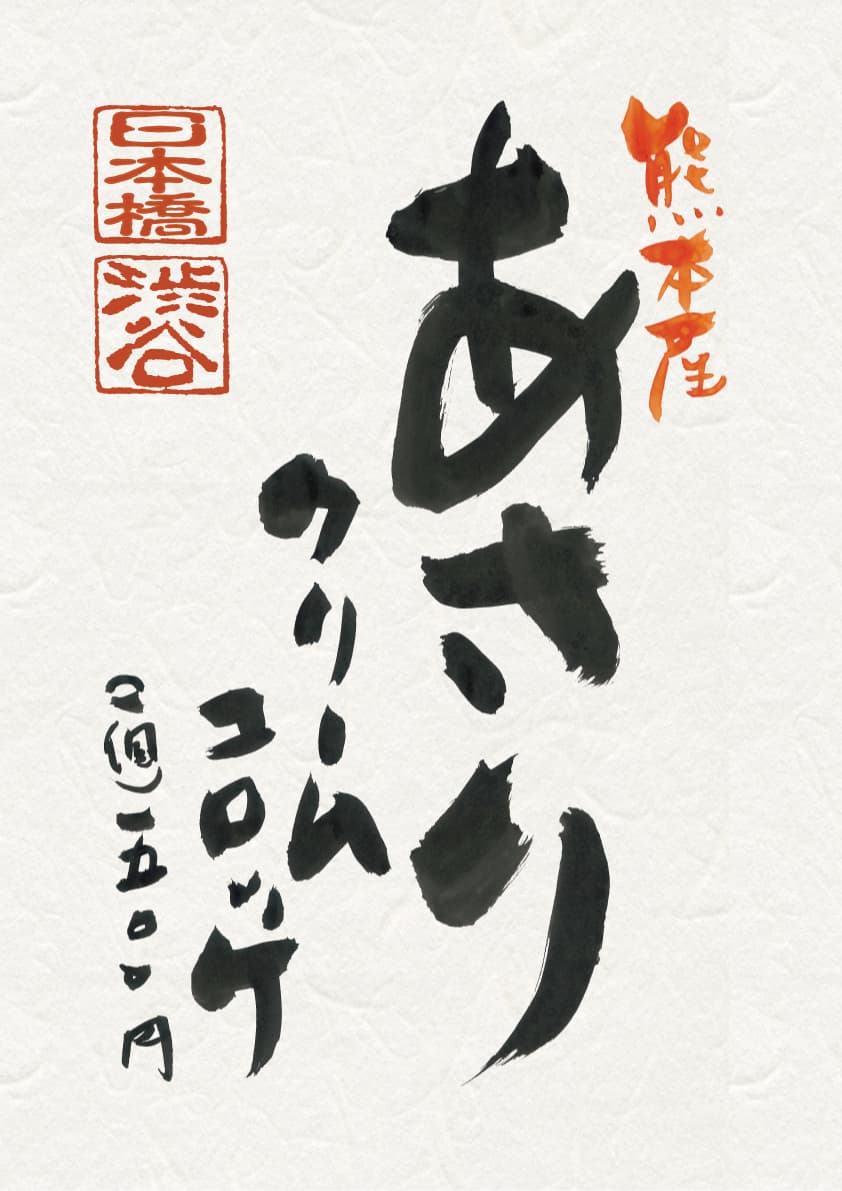 熊本産
あさり
クリーム
コロッケ
2個 一五〇〇円
日本橋
渋谷